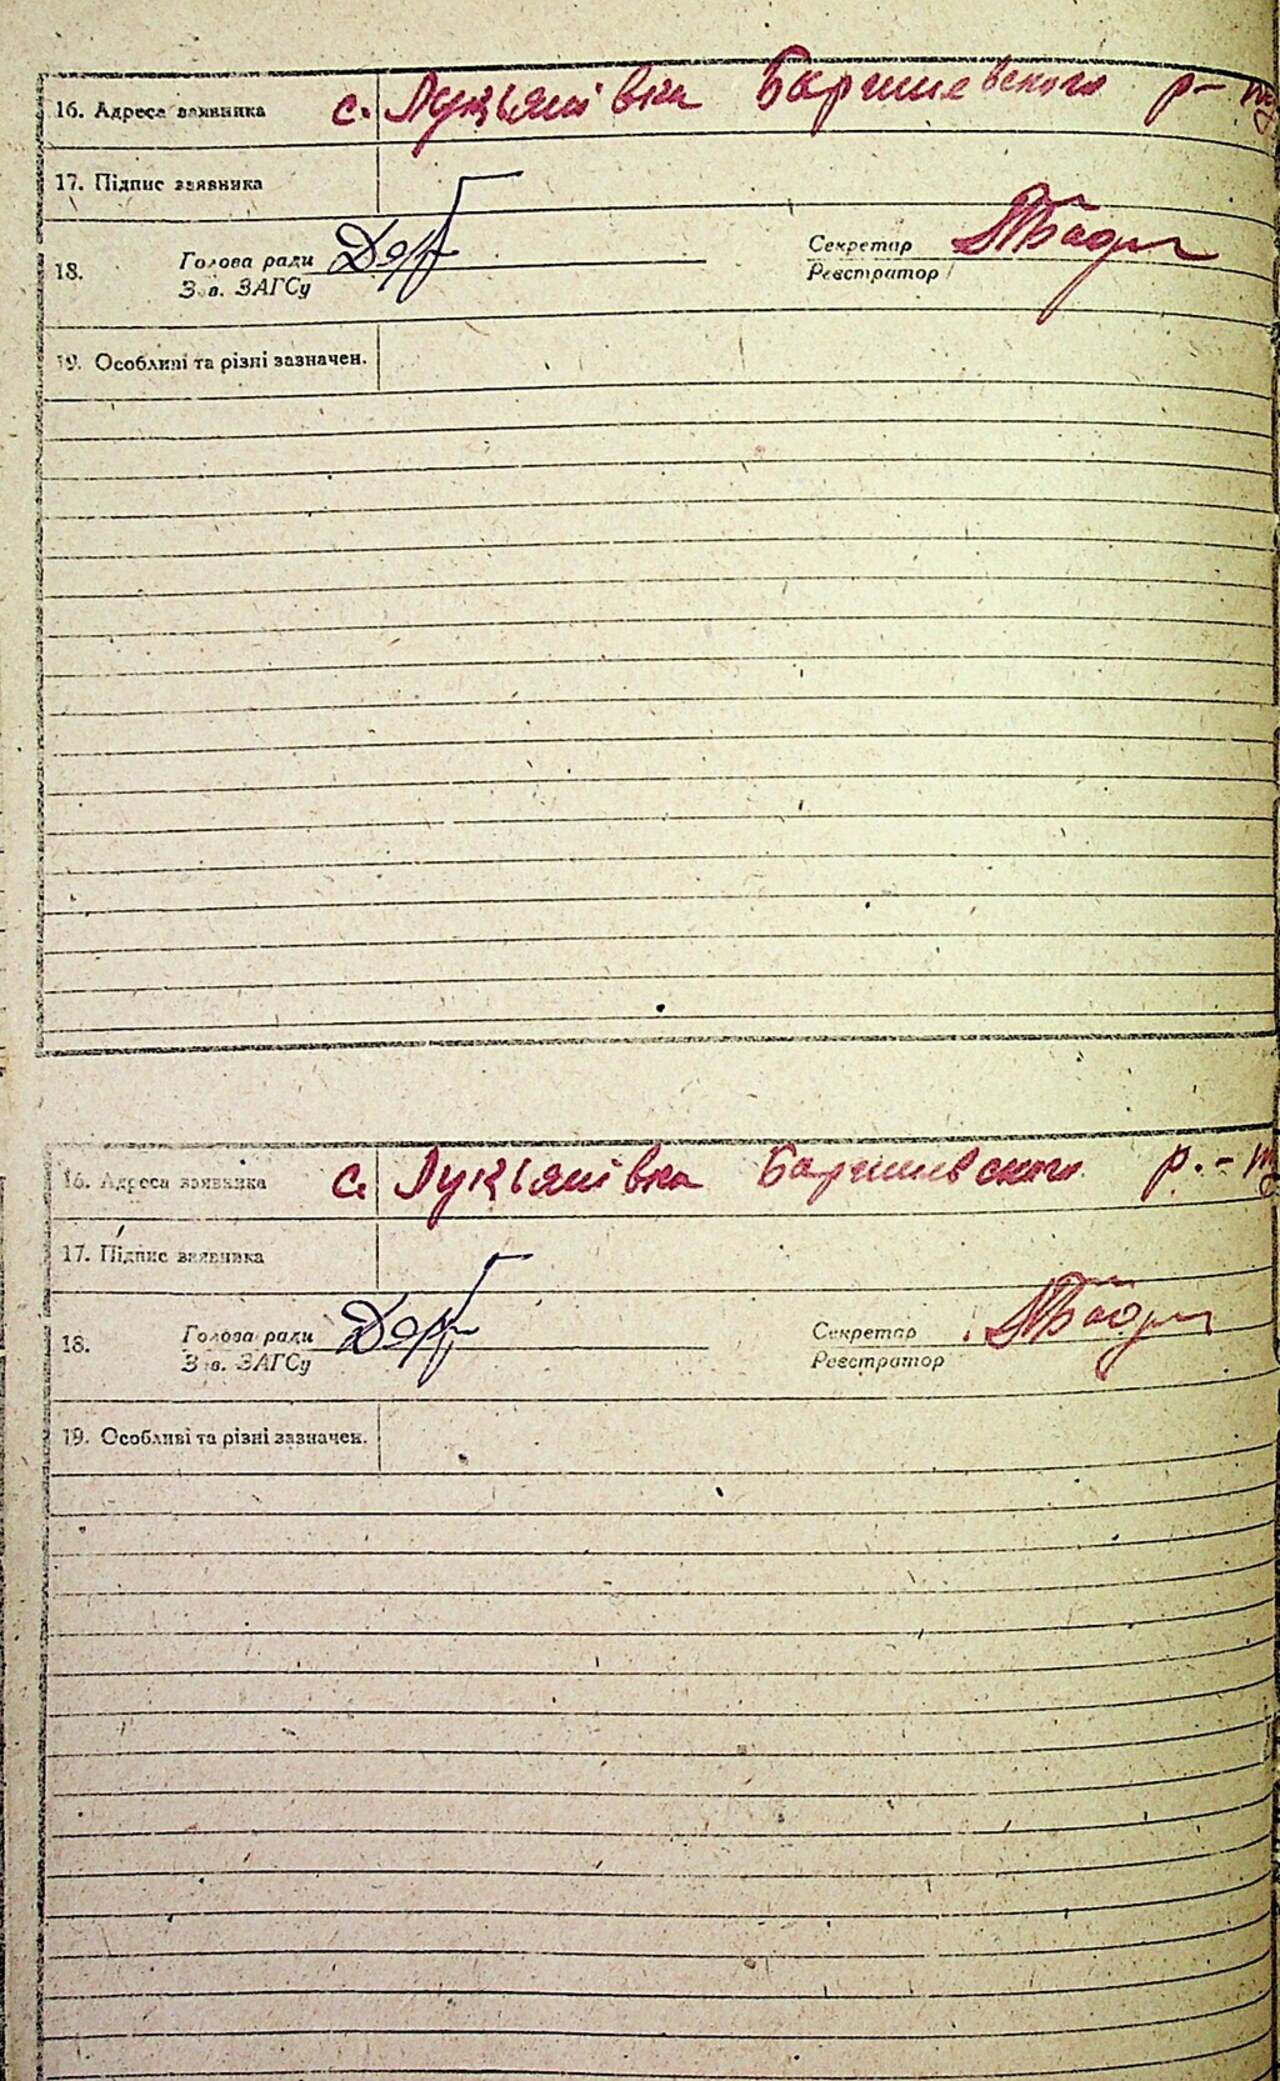 16. Адреса заявника с. Лукьянівка Баришевського р-ну
17. Підпис заявника
18. Голова ради Секретар
Зав. ЗАГСу Реєстратор
19. Особливі та різні зазначен.
16. Адреса заявника с. Лукьянівка Баришевского р.-ну
17. Підпис заявника
18. Голова ради Секретар
Зав. ЗАГСу Реєстратор
19. Особливі та різні зазначен.